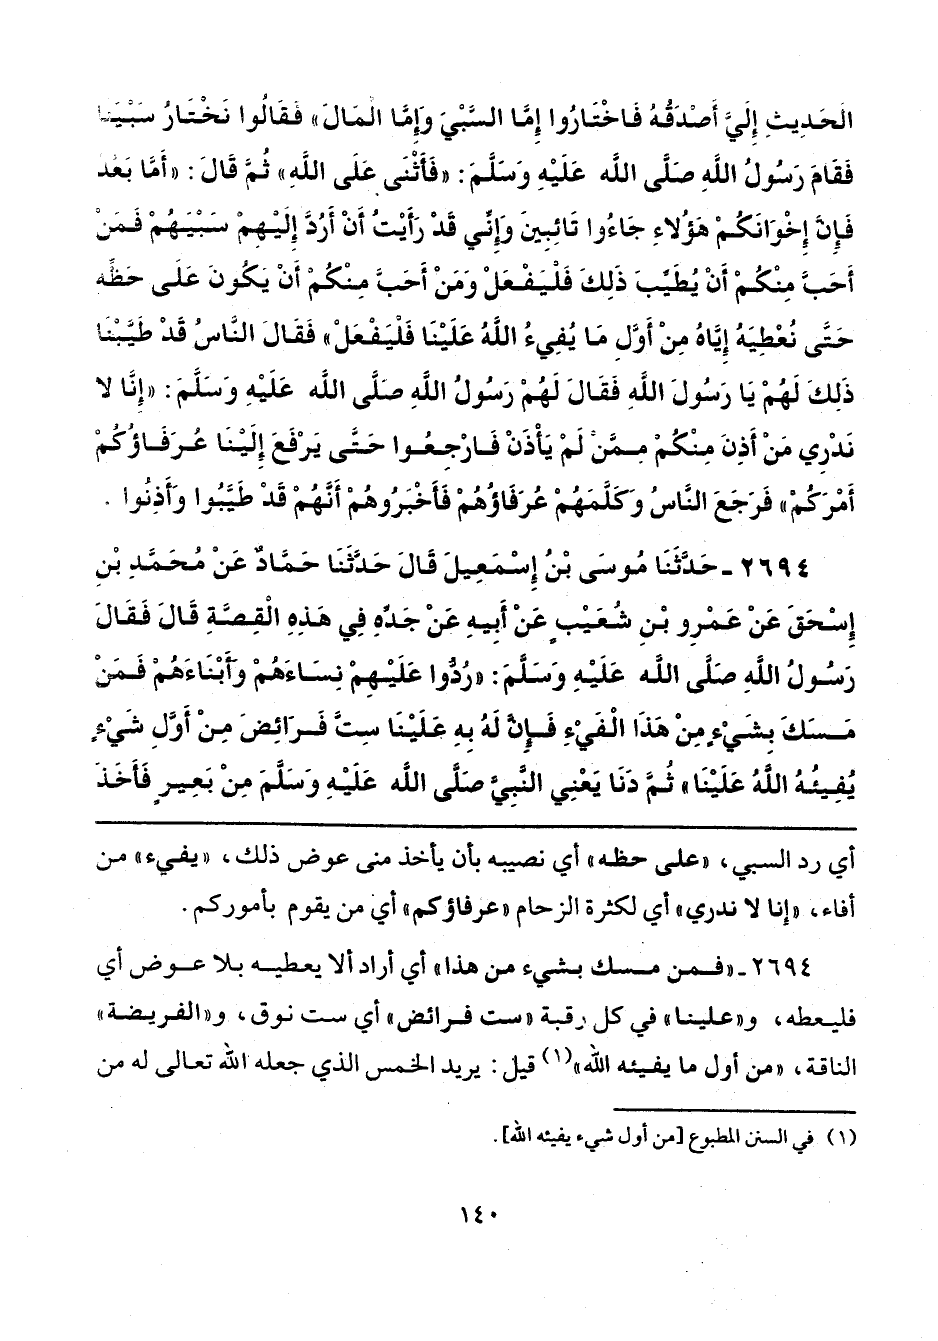 الْحَدِيثِ إِلَيَّ أَصْدَقُهُ فَاخْتَارُوا إِمَّا السَّبْيَ وَإِمَّا الْمَالَ» فَقَالُوا نَخْتَارُ سَبْيَنَا
فَقَامَ رَسُولُ اللَّهِ صَلَّى الله عَلَيْهِ وَسَلَّمَ: «فَأَثْنَى عَلَى اللَّهِ» ثُمَّ قَالَ: «أَمَّا بَعْدَ
فَإِنَّ إِخْوَانَكُمْ هَؤُلَاءِ جَاءُوا تَائِبِينَ وَإِنِّي قَدْ رَأَيْتُ أَنْ أَرُدَّ إِلَيْهِمْ سَبْيَهُمْ فَمَنْ
أَحَبَّ مِنْكُمْ أَنْ يُطَيِّبَ ذَلِكَ فَلْيَفْعَلْ وَمَنْ أَحَبَّ مِنْكُمْ أَنْ يَكُونَ عَلَى حَظِّهِ
حَتَّى نُعْطِيَهُ إِيَّاهُ مِنْ أَوَّلِ مَا يُفِيءُ اللَّهُ عَلَيْنَا فَلْيَفْعَلْ» فَقَالَ النَّاسُ قَدْ طَيَّبْنَا
ذَلِكَ لَهُمْ يَا رَسُولَ اللَّهِ فَقَالَ لَهُمْ رَسُولُ اللَّهِ صَلَّى الله عَلَيْهِ وَسَلَّمَ: «إِنَّا لَا
نَدْرِي مَنْ أَذِنَ مِنْكُمْ مِمَّنْ لَمْ يَأْذَنْ فَارْجِعُوا حَتَّى يَرْفَعَ إِلَيْنَا عُرَفَاؤُكُمْ
أَمْرَكُمْ» فَرَجَعَ النَّاسُ وَكَلَّمَهُمْ عُرَفَاؤُهُمْ فَأَخْبَرُوهُمْ أَنَّهُمْ قَدْ طَيَّبُوا وَأَذِنُوا .
٢٦٩٤ - حَدَّثَنَا مُوسَى بْنُ إِسْمَعِيلَ قَالَ حَدَّثَنَا حَمَّادٌ عَنْ مُحَمَّدِ بْنِ
إِسْحَقَ عَنْ عَمْرِو بْنِ شُعَيْبٍ عَنْ أَبِيهِ عَنْ جَدِّهِ فِي هَذِهِ الْقِصَّةِ قَالَ فَقَالَ
رَسُولُ اللَّهِ صَلَّى الله عَلَيْهِ وَسَلَّمَ: «رُدُّوا عَلَيْهِمْ نِسَاءَهُمْ وَأَبْنَاءَهُمْ فَمَنْ
مَسَكَ بِشَيْءٍ مِنْ هَذَا الْفَيْءِ فَإِنَّ لَهُ بِهِ عَلَيْنَا سِتَّ فَرَائِضَ مِنْ أَوَّلِ شَيْءٍ
يُفِيئُهُ اللَّهُ عَلَيْنَا» ثُمَّ دَنَا يَعْنِي النَّبِيَّ صَلَّى الله عَلَيْهِ وَسَلَّمَ مِنْ بَعِيرٍ فَأَخَذَ
أي رد السبي، «على حظه» أي نصيبه بأن يأخذ منى عوض ذلك، «يفيء» من
أفاء، «إنا لا ندري» أي لكثرة الزحام «عرفاؤكم» أي من يقوم بأموركم.
٢٦٩٤ - «فمن مسك بشيء من هذا» أي أراد ألا يعطيه بلا عوض أي
فليعطه، و«علينا» في كل رقبة «ست فرائض» أي ست نوق، و«الفريضة»
الناقة، «من أول ما يفيئه الله»(١) قيل: يريد الخمس الذي جعله الله تعالى له من
(١) في السنن المطبوع [من أول شيء يفيئه الله].
١٤٠